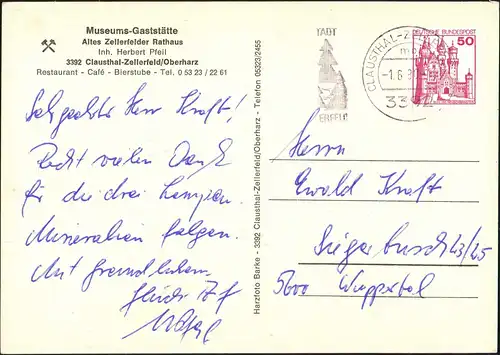 Museums-Gaststätte
Altes Zellerfelder Rathaus
Inh. Herbert Pfeil
3392 Clausthal-Zellerfeld/Oberharz
Restaurant - Café - Bierstube - Tel. 0 53 23 / 22 61
Sehr geehrter Herr Kraft!
Recht vielen Dank
für die drei
Mineralien folgen.
Mit freundlichem
Glück Auf
Harzfoto Barke - 3392 Clausthal-Zellerfeld/Oberharz - Telefon 05323/2455
CLAUSTHAL-ZE
-1.6.
DEUTSCHE BUNDESPOST
50
Herrn
Ewald Kraft
Siegersbusch 23/25
5600 Wuppertal